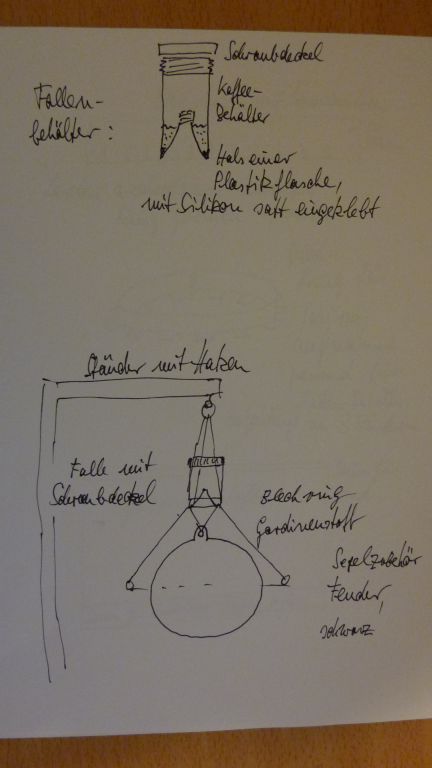 Schraubdeckel
Fallen-
behälter:
Kaffee-
Behälter
Hals einer
Plastikflasche,
mit Silikon satt eingeklebt
Ständer mit Haken
Falle mit
Schraubdeckel
Blechring
Gardinenstoff
Segelzubehör
Fender,
schwarz